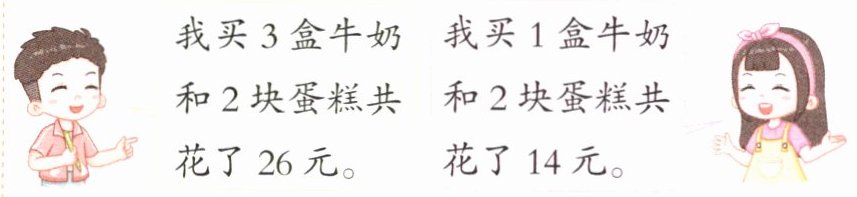 我买3盒牛奶
和2块蛋糕共
花了26元。
我买1盒牛奶
和2块蛋糕共
花了14元。